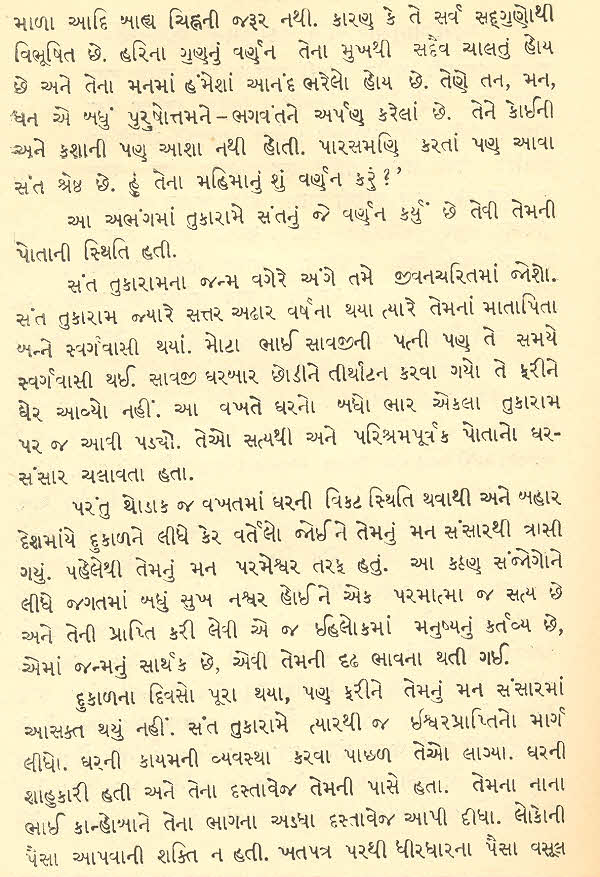 માળા આદિ બાહ્ય ચિહ્નની જરૂર નથી. કારણ કે તે સર્વ સદ્ગુણોથી
વિભૂષિત છે. હરિના ગુણનું વર્ણન તેના મુખથી સદૈવ ચાલતું હોય
છે અને તેના મનમાં હંમેશાં આનંદ ભરેલો હોય છે. તેણે તન, મન,
ધન એ બધું પુરુષોત્તમને–ભગવંતને અર્પણ કરેલાં છે. તેને કોઈની
અને કશાની પણ આશા નથી હોતી. પારસમણિ કરતાં પણ આવા
સંત શ્રેષ્ઠ છે. હું તેના મહિમાનું શું વર્ણન કરું?’
આ અભંગમાં તુકારામે સંતનું જે વર્ણન કર્યું છે તેવી તેમની
પોતાની સ્થિતિ હતી.
સંત તુકારામના જન્મ વગેરે અંગે તમે જીવનચરિતમાં જોશો.
સંત તુકારામ જ્યારે સત્તર અઢાર વર્ષના થયા ત્યારે તેમનાં માતાપિતા
બન્ને સ્વર્ગવાસી થયાં. મોટા ભાઈ સાવજીની પત્ની પણ તે સમયે
સ્વર્ગવાસી થઈ. સાવજી ઘરબાર છોડીને તીર્થાટન કરવા ગયો તે ફરીને
ઘેર આવ્યો નહીં. આ વખતે ઘરનો બધો ભાર એકલા તુકારામ
પર જ આવી પડ્યો. તેઓ સત્યથી અને પરિશ્રમપૂર્વક પોતાનો ઘર-
સંસાર ચલાવતા હતા.
પરંતુ થોડાક જ વખતમાં ઘરની વિકટ સ્થિતિ થવાથી અને બહાર
દેશમાંયે દુકાળને લીધે કેર વર્તેલો જોઈને તેમનું મન સંસારથી ત્રાસી
ગયું. પહેલેથી તેમનું મન પરમેશ્વર તરફ હતું. આ કઠણ સંજોગોને
લીધે જગતમાં બધું સુખ નશ્વર હોઈને એક પરમાત્મા જ સત્ય છે
અને તેની પ્રાપ્તિ કરી લેવી એ જ ઈહલોકમાં મનુષ્યનું કર્તવ્ય છે,
એમાં જન્મનું સાર્થક છે, એવી તેમની દૃઢ ભાવના થતી ગઈ.
દુકાળના દિવસો પૂરા થયા, પણ ફરીને તેમનું મન સંસારમાં
આસક્ત થયું નહીં. સંત તુકારામે ત્યારથી જ ઈશ્વરપ્રાપ્તિનો માર્ગ
લીધો. ઘરની કાયમની વ્યવસ્થા કરવા પાછળ તેઓ લાગ્યા. ઘરની
શાહુકારી હતી અને તેના દસ્તાવેજ તેમની પાસે હતા. તેમના નાના
ભાઈ કાન્હોબાને તેના ભાગના અડધા દસ્તાવેજ આપી દીધા. લોકોની
પૈસા આપવાની શક્તિ ન હતી. ખતપત્ર પરથી ધીરધારના પૈસા વસૂલ